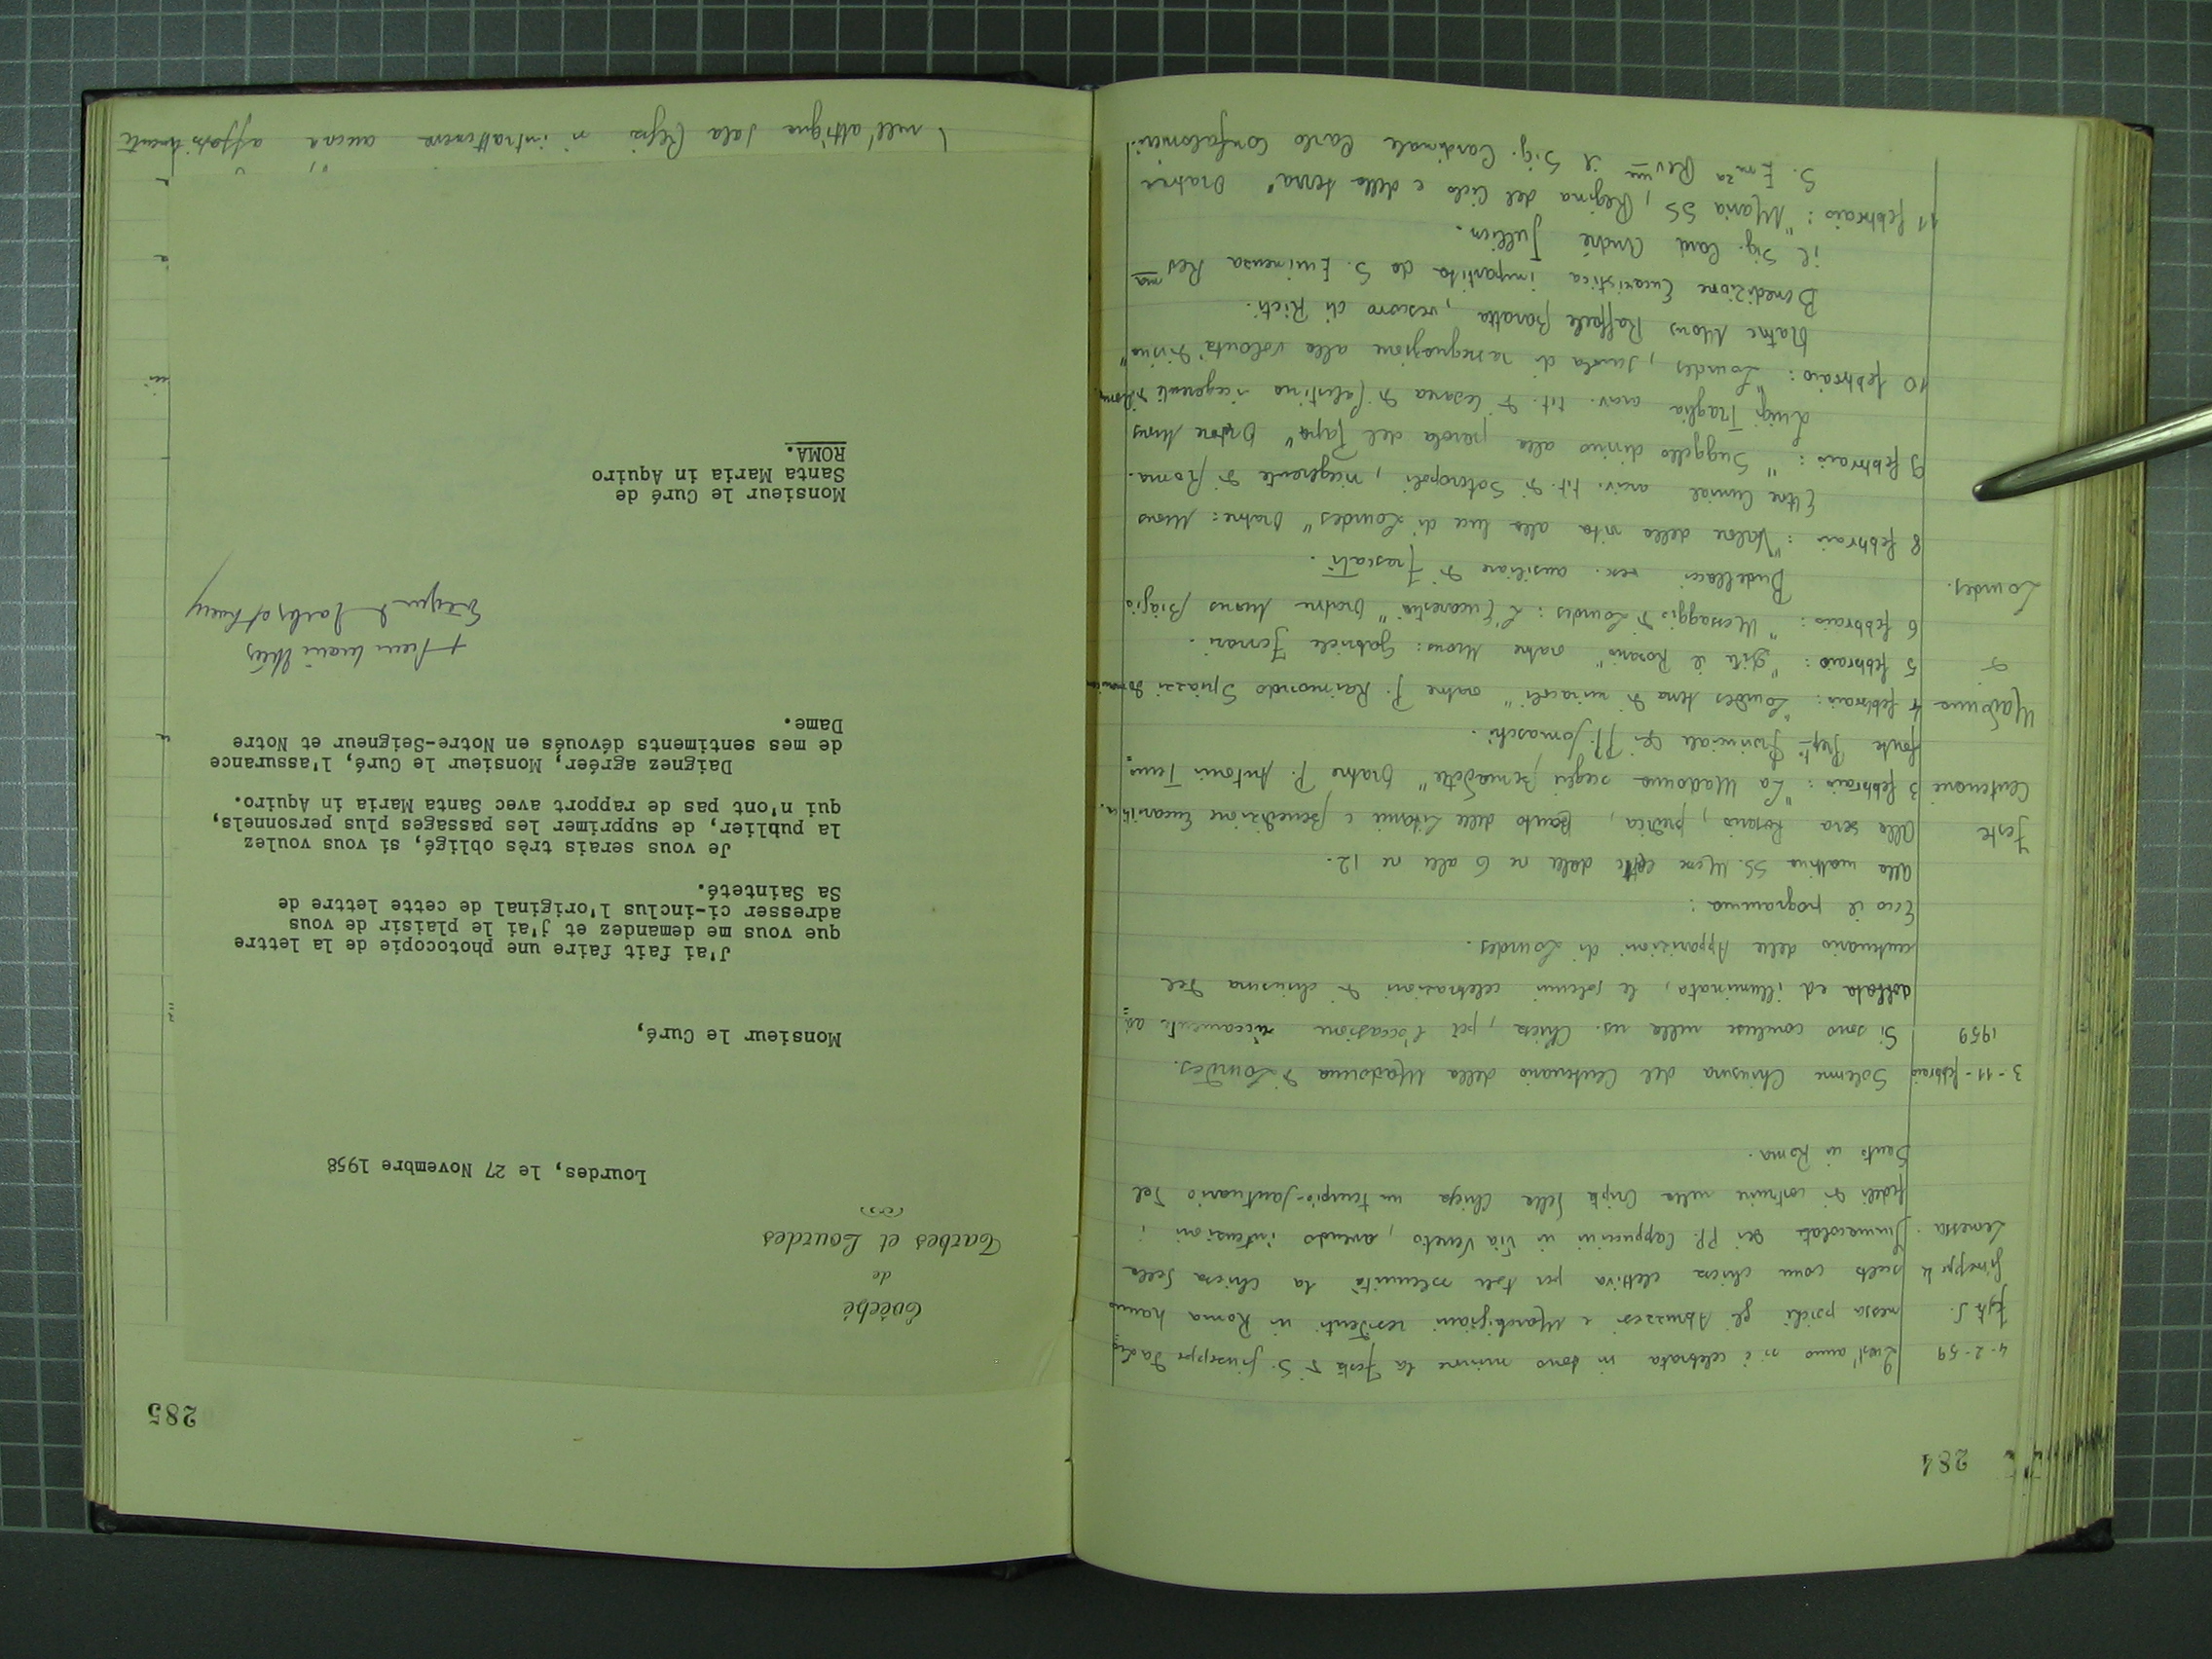 284
4-2-59 Quest'anno si è celebrata in tono minore la festa di S. Giuseppe da Leo=
festa S. nessa poichè gli Abruzzesi e Marchigiani residenti in Roma hanno
Giuseppe da scelto come chiesa elettiva per tale solennità la chiesa della
Leonessa. Immacolata dei PP. Cappuccini in Via Veneto, avendo intenzioni i
fedeli di costruire nella Cripta della Chiesa un tempio-santuario del
Santo in Roma.
3-11-febbraio Solenne Chiusura del Centenario della Madonna di Lourdes.
1959 Si sono concluse nella ns. Chiesa, per l'occasione riccamente ad=
dobbata ed illuminata, le solenni celebrazioni di chiusura del
centenario delle Apparizioni di Lourdes.
Ecco il programma:
alla mattina SS. Messe lette dalle ne 6 alle ne 12.
Feste Alla sera Rosario, predica, Canto delle Litanie e Benedizione Eucaristica.
Centenarie 3 febbraio: "La Madonna sceglie Bernadette" Oratre P. Antonio
Provinciale dei PP. Somaschi.
Madonna 4 febbraio: "Lourdes terra di miracoli" oratre P. Raimondo Spiazzi domenicano
di 5 febbraio: "Gite il Rosario" oratre Mons: Gabriele Ferrari.
Lourdes. 6 febbraio: "Messaggio di Lourdes: L'Eucarestia" Oratre Mons Biagio
Budellacci vesc. ausiliare di Frascati.
8 febbraio: "Valore della vita alla luce di Lourdes" Oratre: Mons
Ettre Cunial arciv. tit. di Soteropoli, vicegerente di Roma.
9 febbraio: "Suggello divino alla parola del Papa" Oratore Mons
Luigi Traglia arciv. tit. di Cesarea di Palestina vicegerente di Roma.
10 febbraio: "Lourdes, scuola di rassegnazione alla volontà Divina"
Oratre Mons Raffaele Baratta, vescovo di Rieti.
Benedizione Eucaristica impartita da S. Eminenza Revma
il Sig. Card André Jullien.
11 febbraio: "Maria SS, Regina del Cielo e della terra" Oratre
S. Emza Revma il Sig. Cardinale Carlo Confalonieri.
285
Evêché
de
Tarbes et Lourdes
Lourdes, le 27 Novembre 1958
Monsieur le Curé,
J'ai fait faire une photocopie de la lettre
que vous me demandez et j'ai le plaisir de vous
adresser ci-inclus l'original de cette lettre de
Sa Sainteté.
Je vous serais très obligé, si vous voulez
la publier, de supprimer les passages plus personnels,
qui n'ont pas de rapport avec Santa Maria in Aquiro.
Daignez agréer, Monsieur le Curé, l'assurance
de mes sentiments dévoués en Notre-Seigneur et Notre
Dame.
Monsieur le Curé de
Santa Maria in Aquiro
ROMA.
nell'attigua Sala Regia si intrattenere ancora